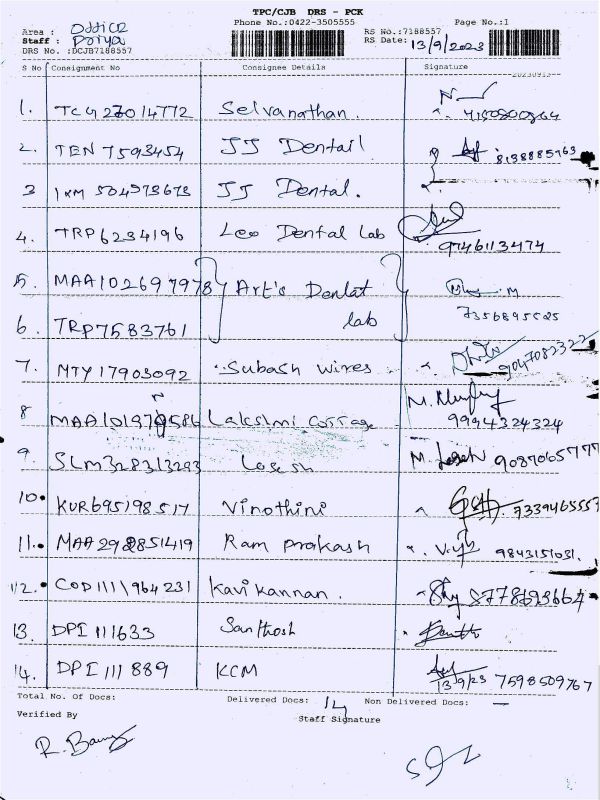 TPC/CJB DRS - PCK
Phone No.:0422-3505555 Page No.:1
Area : Office
Staff : Porya RS No.:7188557
DRS No. :DCJB7188557 RS Date: 13/9/2023
S No Consignment No Consignee Details Signature
1. TCG27014772 Selvanathan.
2. TEN 7593454 JJ Dentail 8138885763
3 IKM 504973673 JJ Dental.
4. TRP6234196 Leo Dental lab 9746113474
5. MAA102697978 Art's Dental lab
6. TRP7583761 7356895525
7. MTY17903092 Subash wires 9047082322
8 MAA101979586 Lakslmi 9994324324
9. SLM328313293 Logesh 9087065777
10. KUR695198517 Vinothini 7339465553
11. MAA292851419 Ram prakash 9843151031.
12. COD1111964231 Kavi Kannan. 8778693664
13. DPI 111633 Santhosh
14. DPI 111889 KCM 13/9/23 7598509767
Total No. Of Docs: Delivered Docs: 14 Non Delivered Docs: —
Verified By Staff Signature